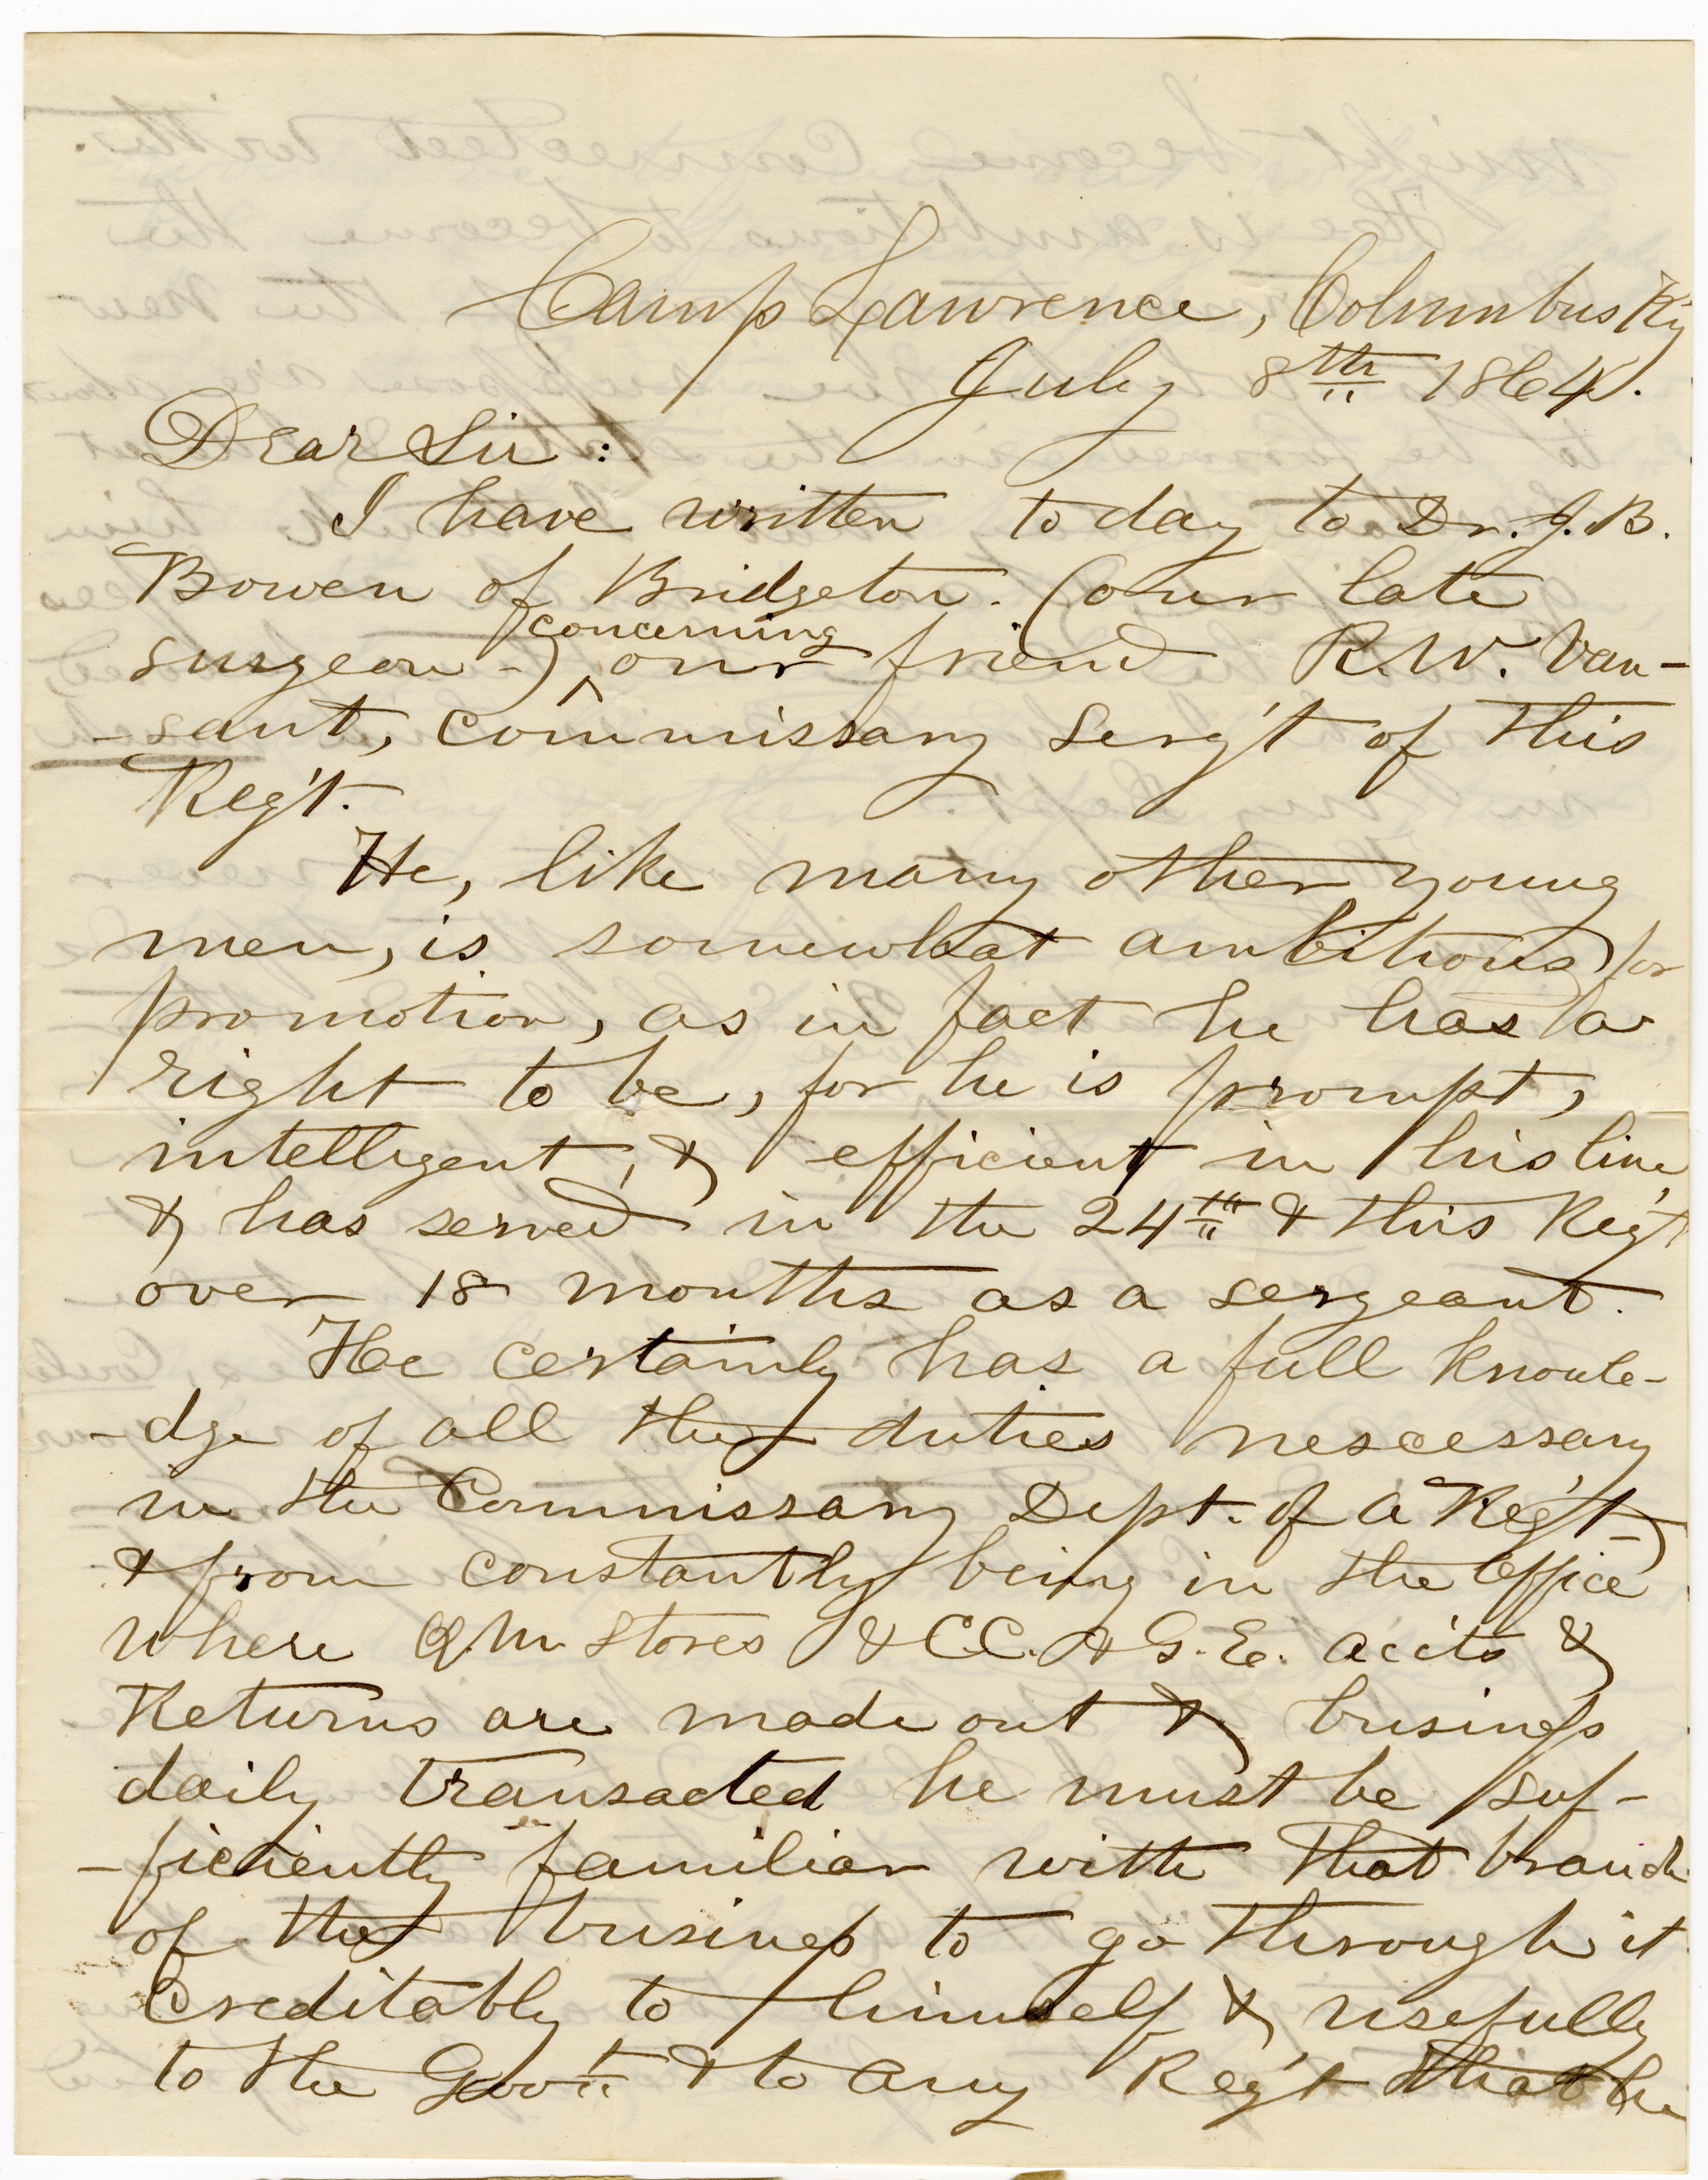 Camp Lawrence, Columbus Ky
July 8th 1864.
Dear Sir:
I have written to day to Dr. J. B.
Bowen of Bridgeton. (our late
surgeon-) concerning our friend R. W. Van-
-sant, commissary Serg't of this
Reg't.
He, like many other young
men, is somewhat ambitious for
promotion, as in fact he has a
right to be, for he is prompt,
intelligent, & efficient in his line
& has served in the 24th & this Reg't
over 18 months as a sergeant.
He certainly has a full knowle-
-dge of all the duties nescessary
in the Commissary Dept. of a Reg't-
& from constantly being in the Office
where Q.M. Stores & C.C. & G. E. acc'ts &
Returns are made out & business
daily transacted he must be suf-
-ficiently familiar with that branch
of the business to go through it
Creditably to himself & usefully
to the Govt. & to any Reg't that he